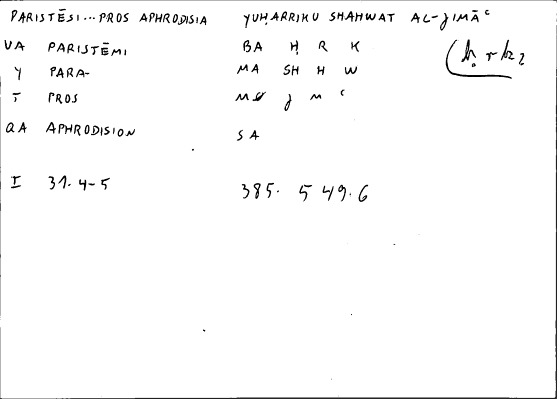 PARISTĒSI...PROS APHRODISIA YUḤARRIKU SHAHWAT AL-JIMĀʿ
VA PARISTĒMI BA Ḥ R K
Y PARA- MA SH H W
T PROS J M ʿ
QA APHRODISION SA
I 31.4-5 385. 5 49.6